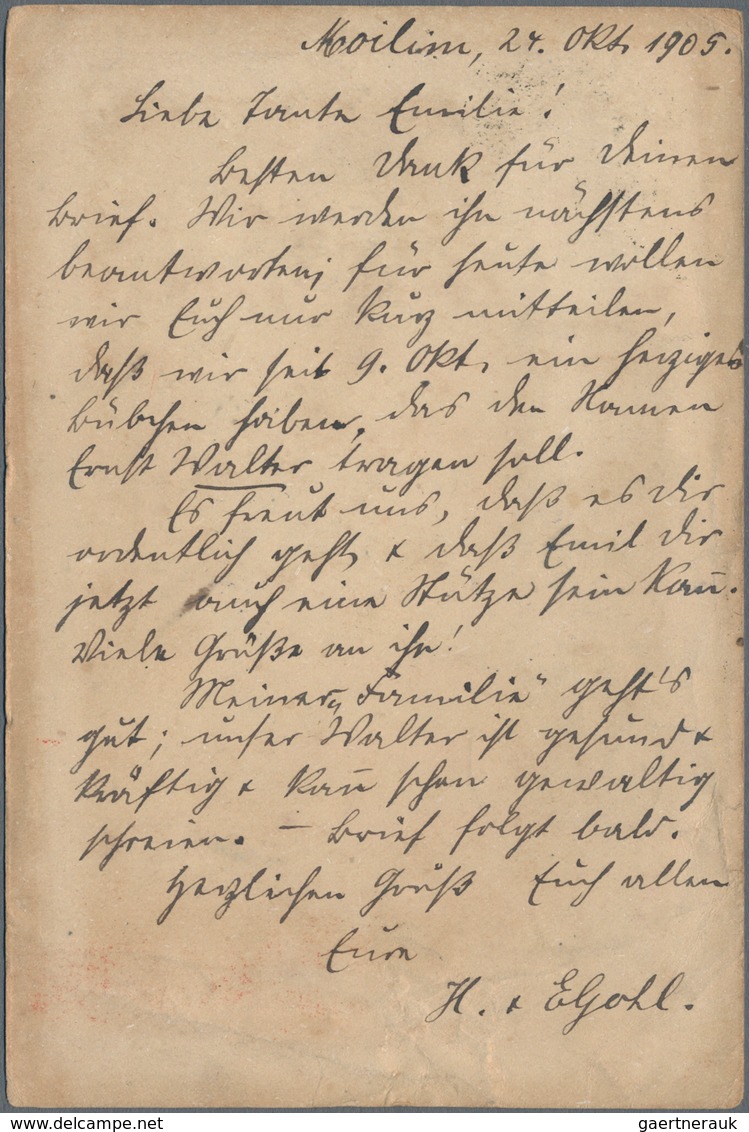 Moilim, 24. Okt. 1905.
Liebe Tante Emilie!
Besten Dank für Deinen
Brief. Wir werden ihn nächstens
beantworten; für heute wollen
wir Euch nur kurz mitteilen,
daß wir seit 9. Okt. ein herziges
Bübchen haben, das den Namen
Ernst Walter tragen soll.
Es freut uns, daß es dir
ordentlich geht & daß Emil dir
jetzt auch eine Stütze sein kan̄.
Viele Grüße an ihn!
Meiner „Familie" geht's
gut; unser Walter ist gesund &
kräftig & kan̄ schon gewaltig
schreien. — Brief folgt bald.
Herzlichen Gruß Euch allen
Eure
H. & EGohl.
gaertnerauk